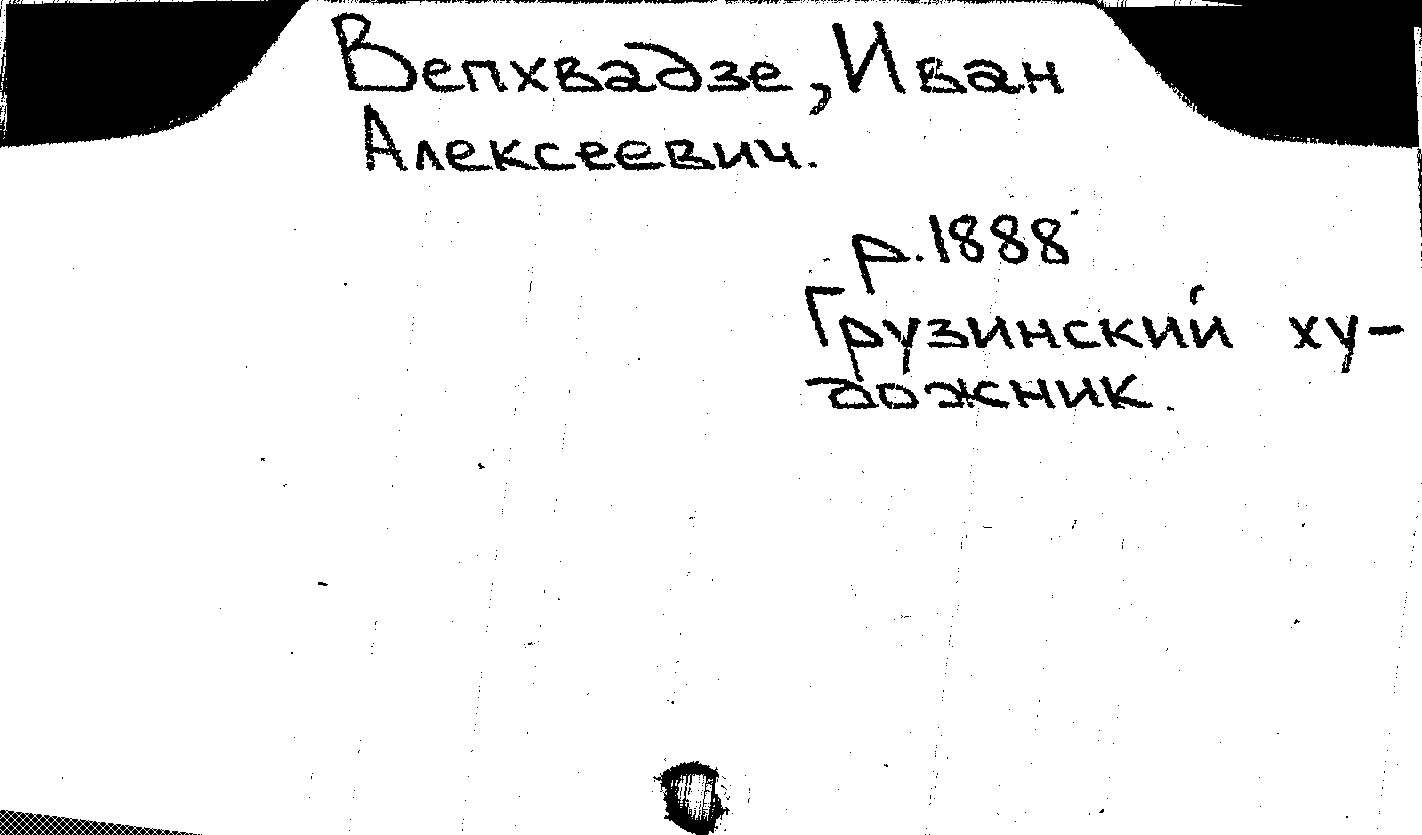 Вепхвадзе, Иван
Алексеевич.
р. 1888
Грузинский ху-
дожник.